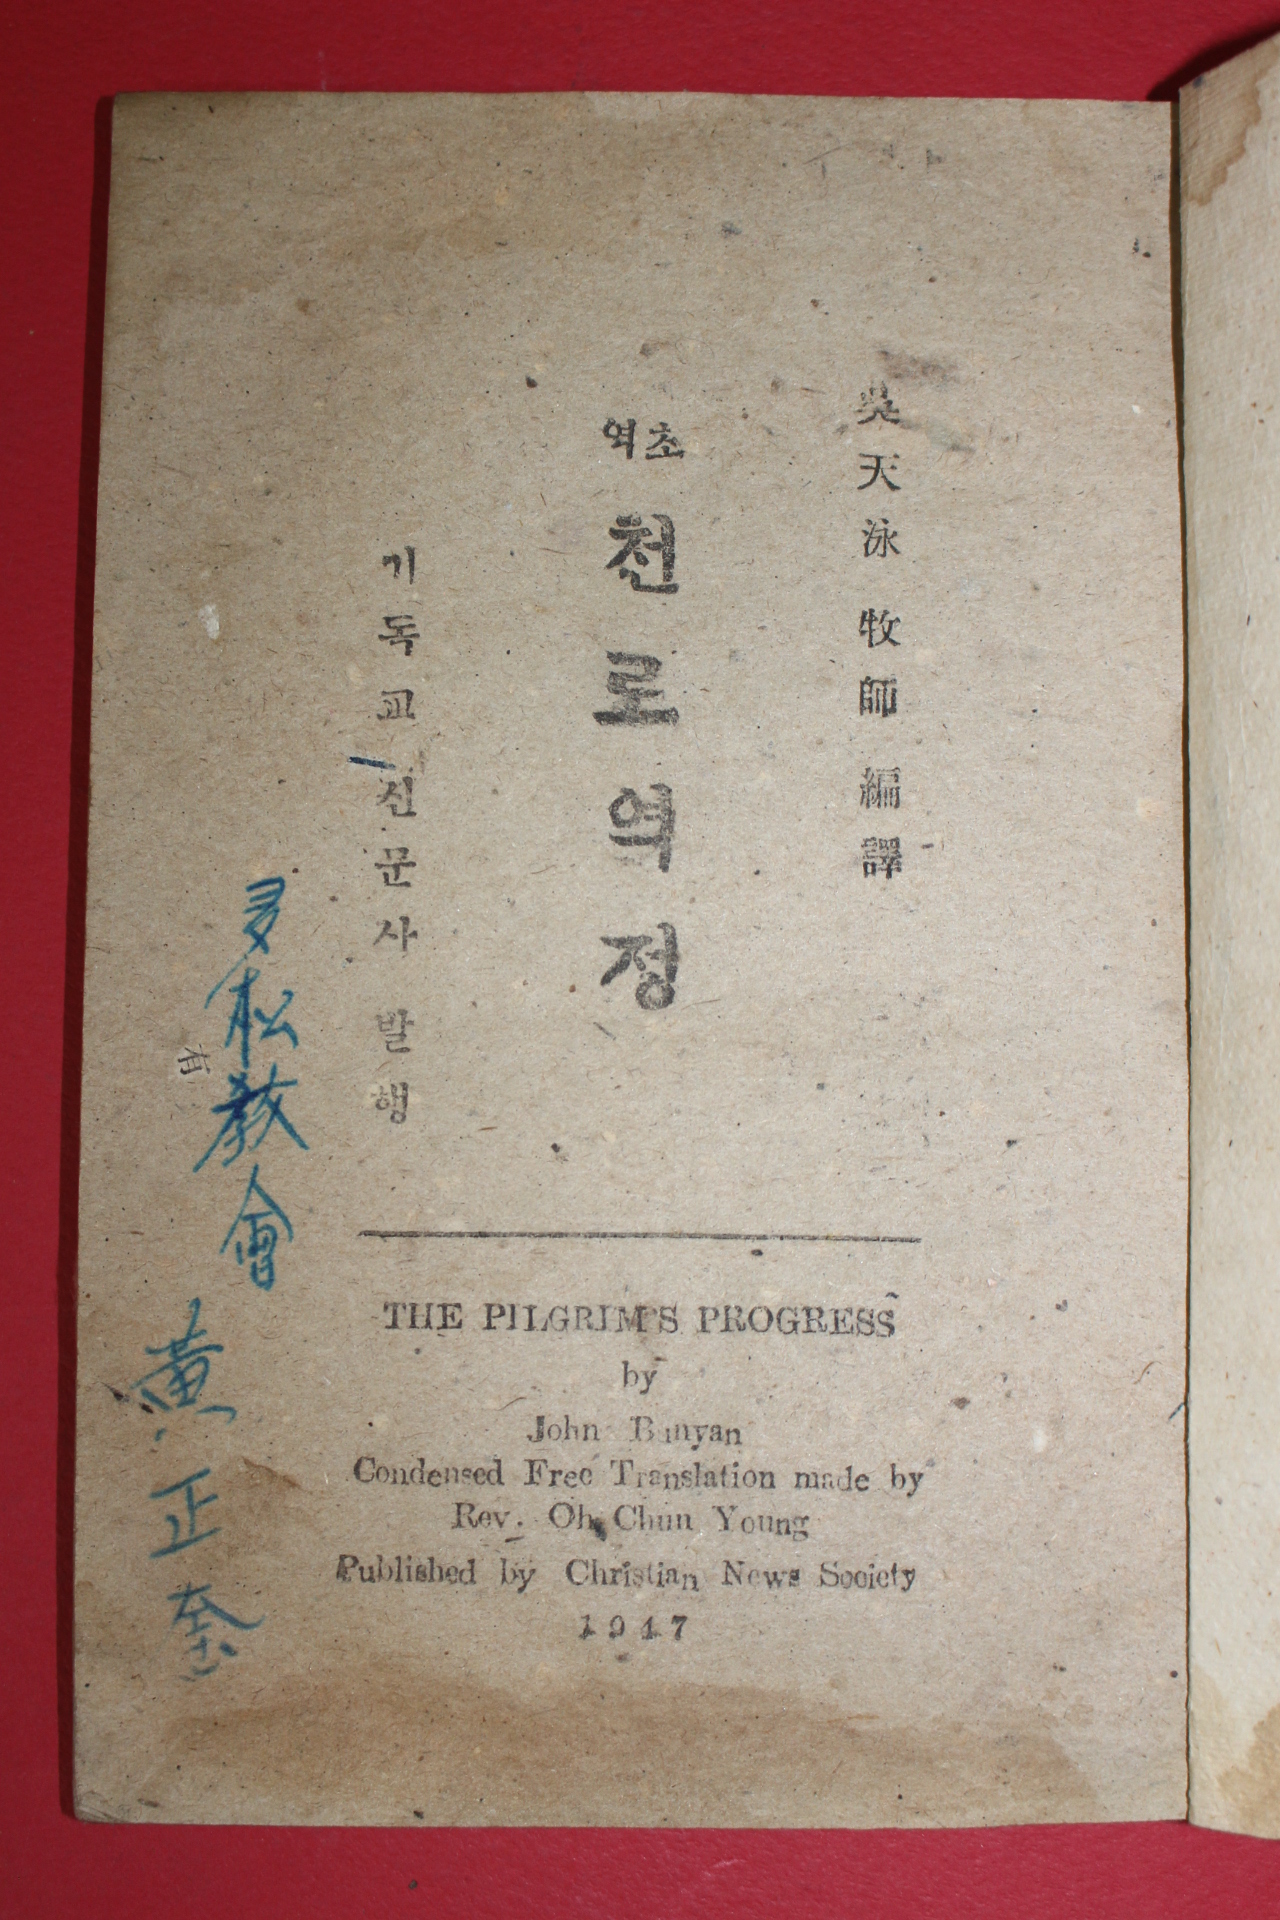 吳天泳 牧師 編譯
초역
천로역정
기독교 신문사 발행
松教會
有
黃正
THE PILGRIM'S PROGRESS
by
John Bunyan
Condensed Free Translation made by
Rev. Oh Chun Young
Published by Christian News Society
1947